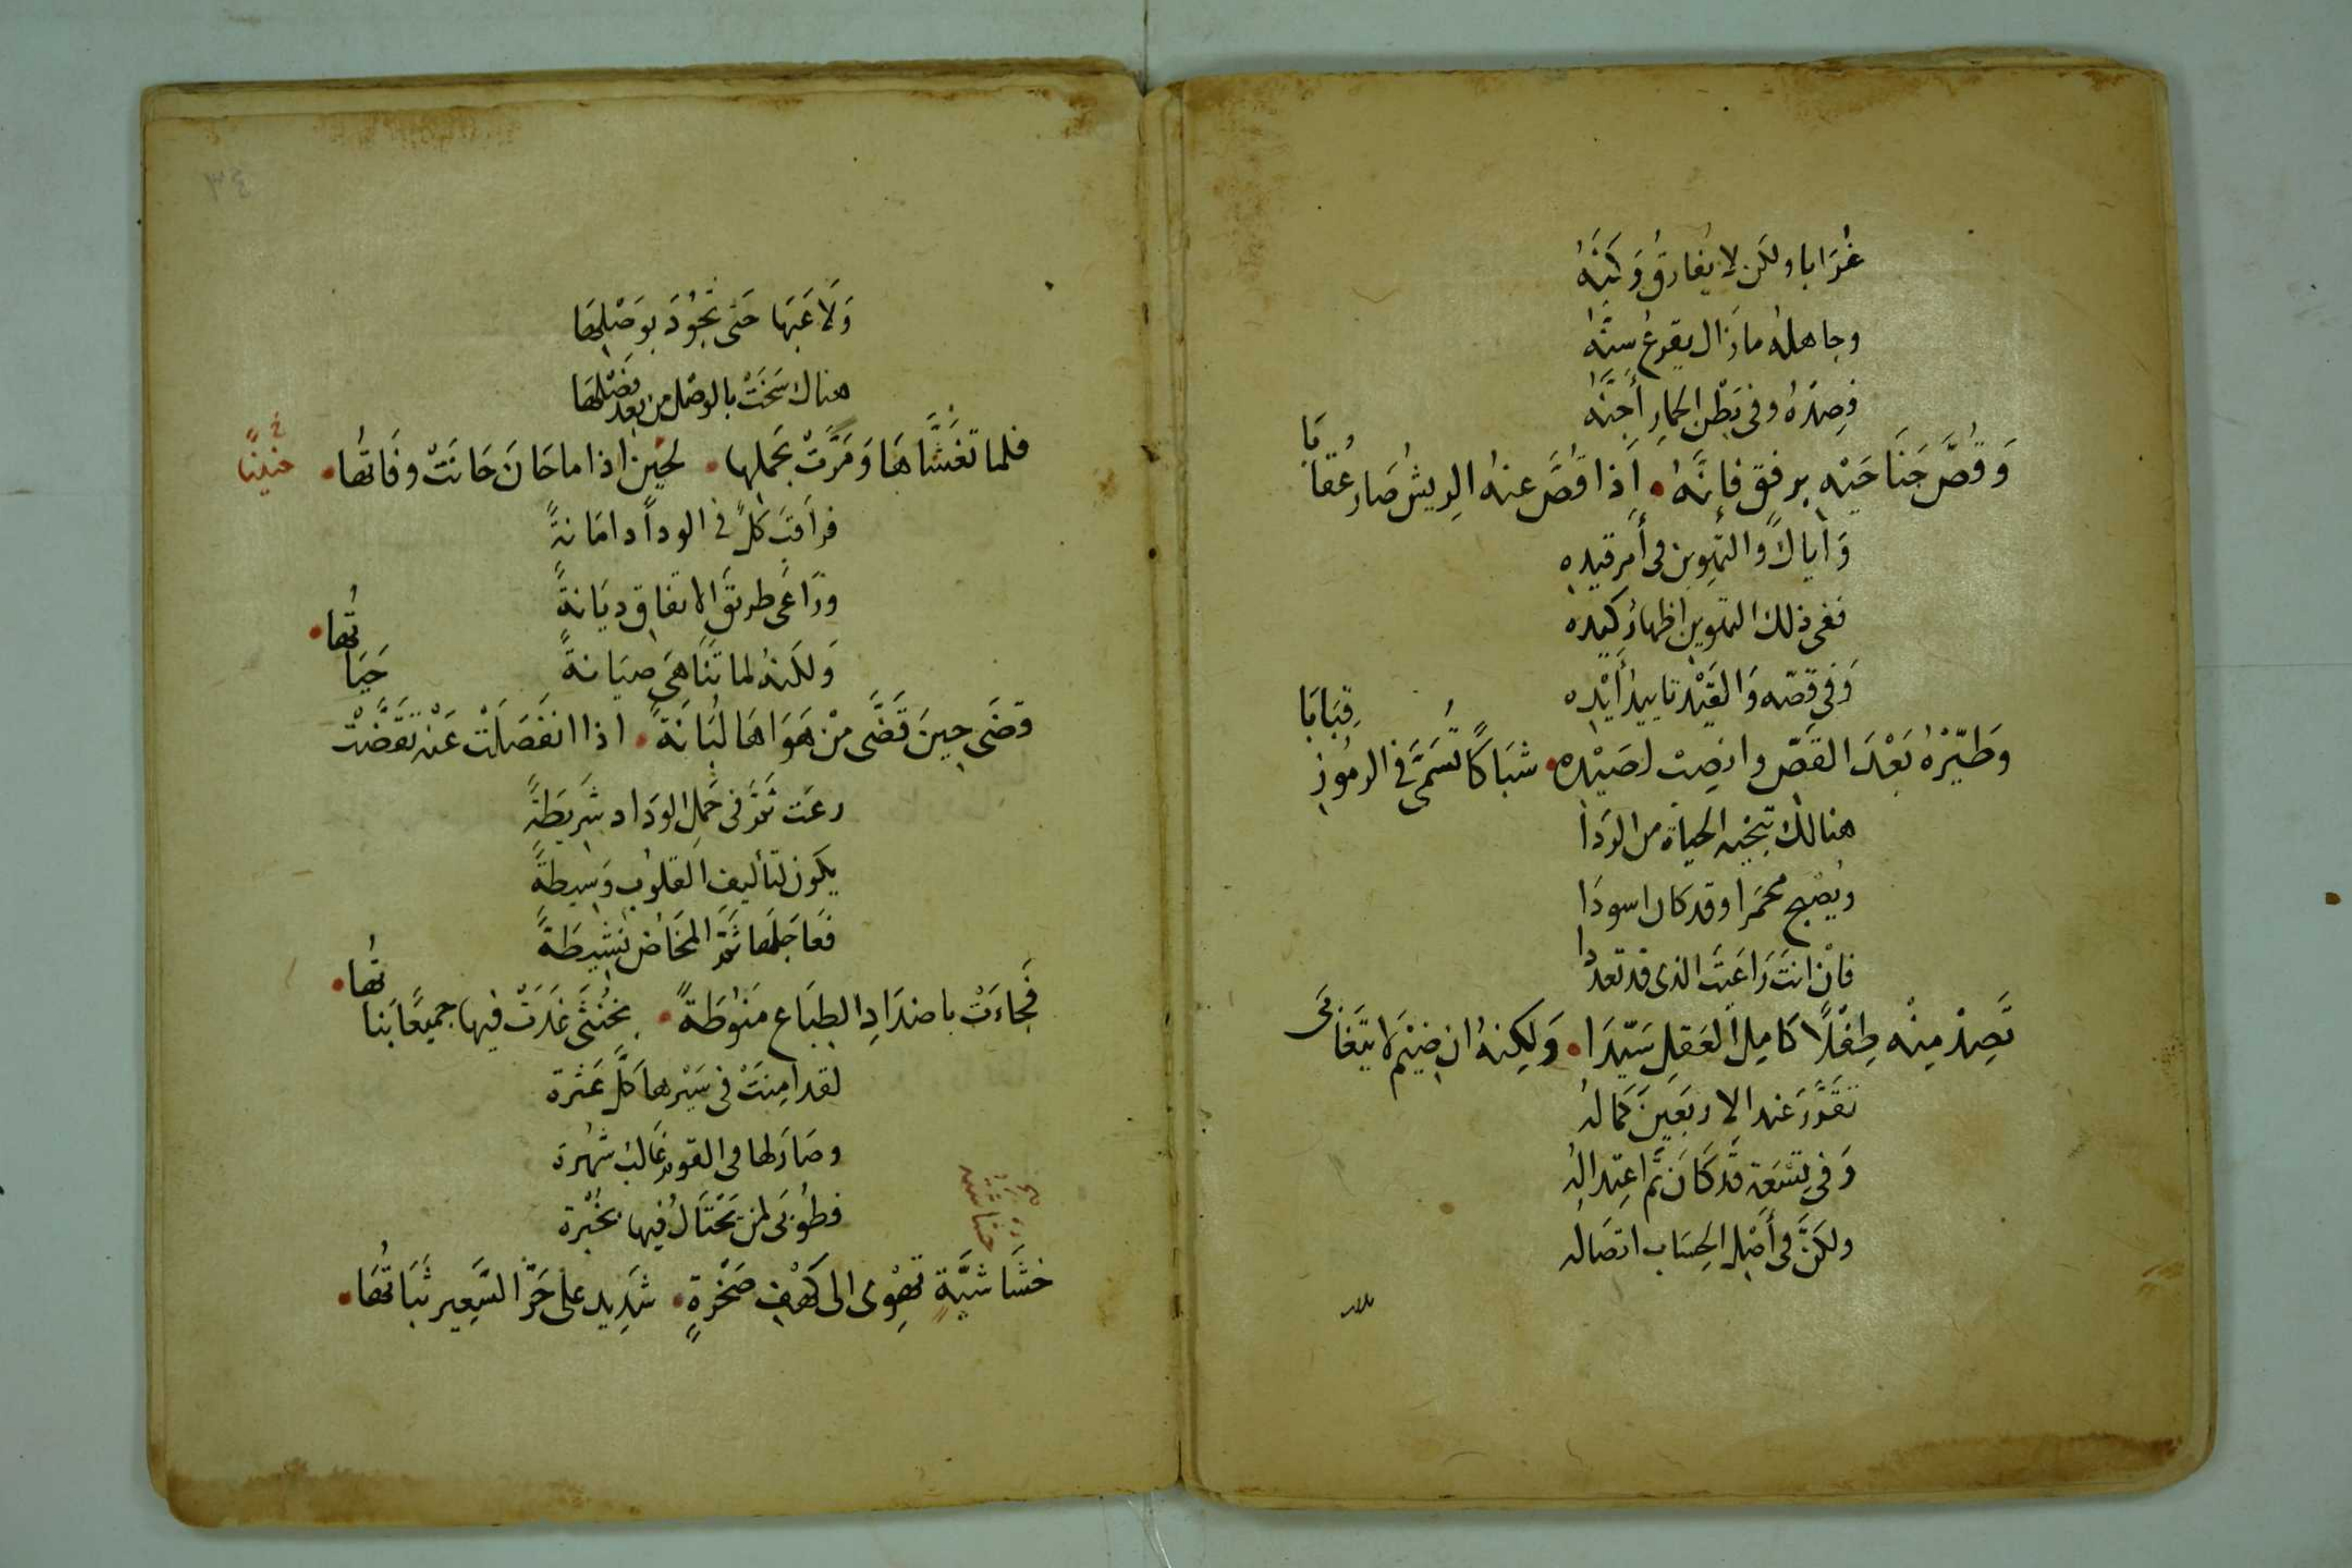 غُرَابا ولكن لا يُفارقُ وَكنَهُ
وجاهلهُ مازَال يقرعُ سِنّهُ
فصِدهُ وفى بَطْن الحمارِ أجِنَّهُ
وَقُصَّ جَنَاحَيْه بِرفقٍ فإنَّهُ • إذا قُصَّ عنهُ الريشُ صَار عُقابَا
وَاياكَ والتهوينَ فى أمرِ قيده
ففى ذلك التهوين اظهارُ كيده
وَفى قصّه وَالقَيْد تاييدُ أَيْده
وَطيّرْهُ بَعْدَ القَصّ وانصِبْ لصَيْده • شبَاكاً تُسَمَّى فى الرموز قِبَابَا
هنالك تنجيه الحياة من الرَدا
ويُصْبح محمَرا وقد كان اسودَا
فانْ انتَ رَاعَيتَ الذى قد تعددا
تَصِدْ مِنْه طِفْلًا كَامِلَ العَقلِ سَيّدَا • وَلكِنهُ ان ضيْمَ لا يتغابَى
تقرَّرَ عند الاربَعِينَ كمَالهُ
وَفى تِسْعَة قَد كَانَ ثمَّ اعتِدالهُ
ولكنَّ فى أصْلِ الحِسَاب اتصَاله
٣٤
وَلَاعَبَها حَتى تجُودَ بوَصْلِهَا
هناك سَخَتْ بالوصْل من بعد فضْلِهَا
فلما تغَشَّاهَا وَمَرَّتْ بحَملها • لحَينٍ اذا ما حَانَ حَانَتْ وفَاتهُا •
فرَاقبَ كلٌّ فى الودادِ امَانةً
ورَاعَى طريقَ الاتفاق ديَانةً
وَلكنهُ لما تنَاهَى صيَانةً
قضَى حِينَ قضَّى مِنْ هَوَاهَا لبَانَةً • اذا انفَصَلتْ عَنْه تقَضَّتْ حَيَاتُها •
رعَت ثمَّ فى حَملِ الودَاد شرِيطَةً
يكون لتأليفِ القلوب وَسِيطةً
فعَاجَلهَا ثمَّ المخَاضُ نشِيطَةً
فجَاءَتْ باضدَادِ الطبَاع مَنوُطَةً • بخُنثَى غدَتْ فيها جميعًا بَناتُها •
لقد امِنتْ فى سَيْرها كلَّ عَثرة
وصَارَ لها فى القوم غالبُ شهْرة
فطوُبَى لمن يحْتَالُ فيها بخُبْرة
خشَاشيَّةٍ تهوْى الى كَهْفِ صَخْرةٍ • شدِيدٍ على حَرّ السَّعِير ثبَاتُهَا •